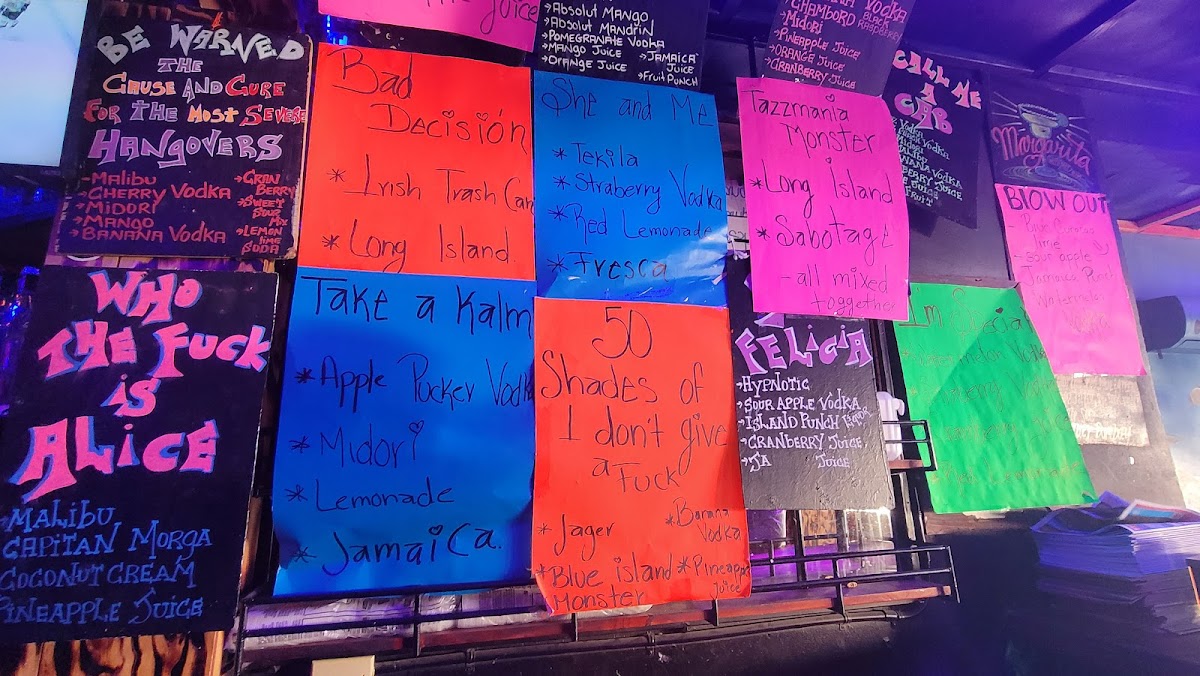 The Juice
→Absolut Mango
→Absolut Mandrin
→Pomegranate Vodka
→Mango Juice
→Orange Juice
→Jamaica
Juice
→Fruit Punch
Vodka
→Chambord
Black
Raspberry
→Midori
→Pineapple Juice
→Orange Juice
→Cranberry Juice
Be Warned
The
Cause and Cure
For the Most Severe
Hangovers
→Malibu
→Cherry Vodka
→Midori
→Mango
→Banana Vodka
→Cran
Berry
→Sweet
Sour
Mix
→Lemon
lime
Soda
Bad
Decisión
* Irish Trash Can
* Long Island
She and Me
* Tekila
* Straberry Vodka
* Red Lemonade
* Fresca
Tazzmania
Monster
* Long Island
* Sabotage
- all mixed
toggether
Call Me
A
Cab
Margarita
Blow Out
lime
- Sour apple
Jamaica Punch
Watermelon
Vodka
Who
The Fuck
is
Alice
→Malibu
Capitan Morga
Coconut Cream
Pineapple Juice
Take a Kalm
* Apple Pucker Vodka
* Midori
* Lemonade
* Jamaica.
50
Shades of
I don't give
a Fuck
* Jager
* Blue island
Monster
* Banana
Vodka
* Pineapple
Juice
Felicia
→Hypnotic
→Sour Apple Vodka
→Island Punch
→Cranberry Juice
→Ja Juice
I'm Special